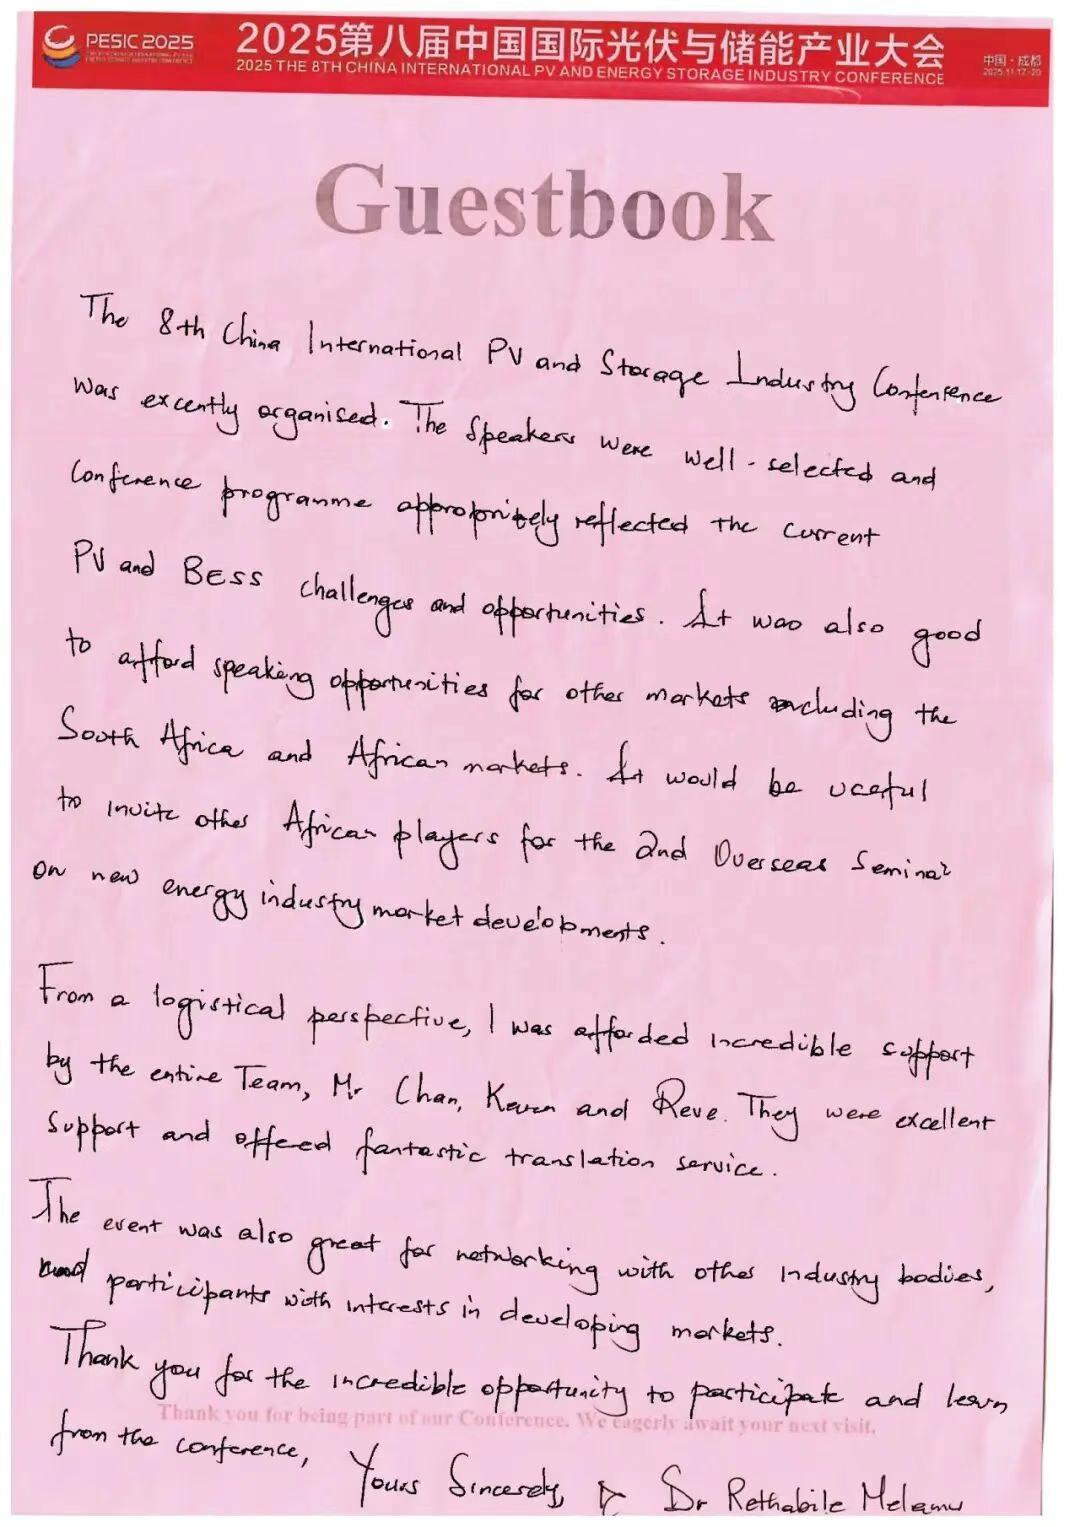 PESIC 2025
2025第八届中国国际光伏与储能产业大会
2025 THE 8TH CHINA INTERNATIONAL PV AND ENERGY STORAGE INDUSTRY CONFERENCE
中国·成都
2025.11.17-20
Guestbook
The 8th China International PV and Storage Industry Conference
was excently organised. The speakers were well-selected and
conference programme appropritely reflected the current
PV and BESS challenges and opportunities. It was also good
to afford speaking opportunities for other markets including the
South Africa and African markets. It would be useful
to invite other African players for the 2nd Overseas Seminar
on new energy industry market developments.
From a logistical perspective, I was afforded incredible support
by the entire Team, Mr Chan, and Reve. They were excellent
support and offered fantastic translation service.
The event was also great for networking with other industry bodies,
and participants with interests in developing markets.
Thank you for the incredible opportunity to participate and learn
Thank you for being part of our Conference. We eagerly await your next visit.
from the conference,
Yours Sincerely, Dr Rethabile Melamu